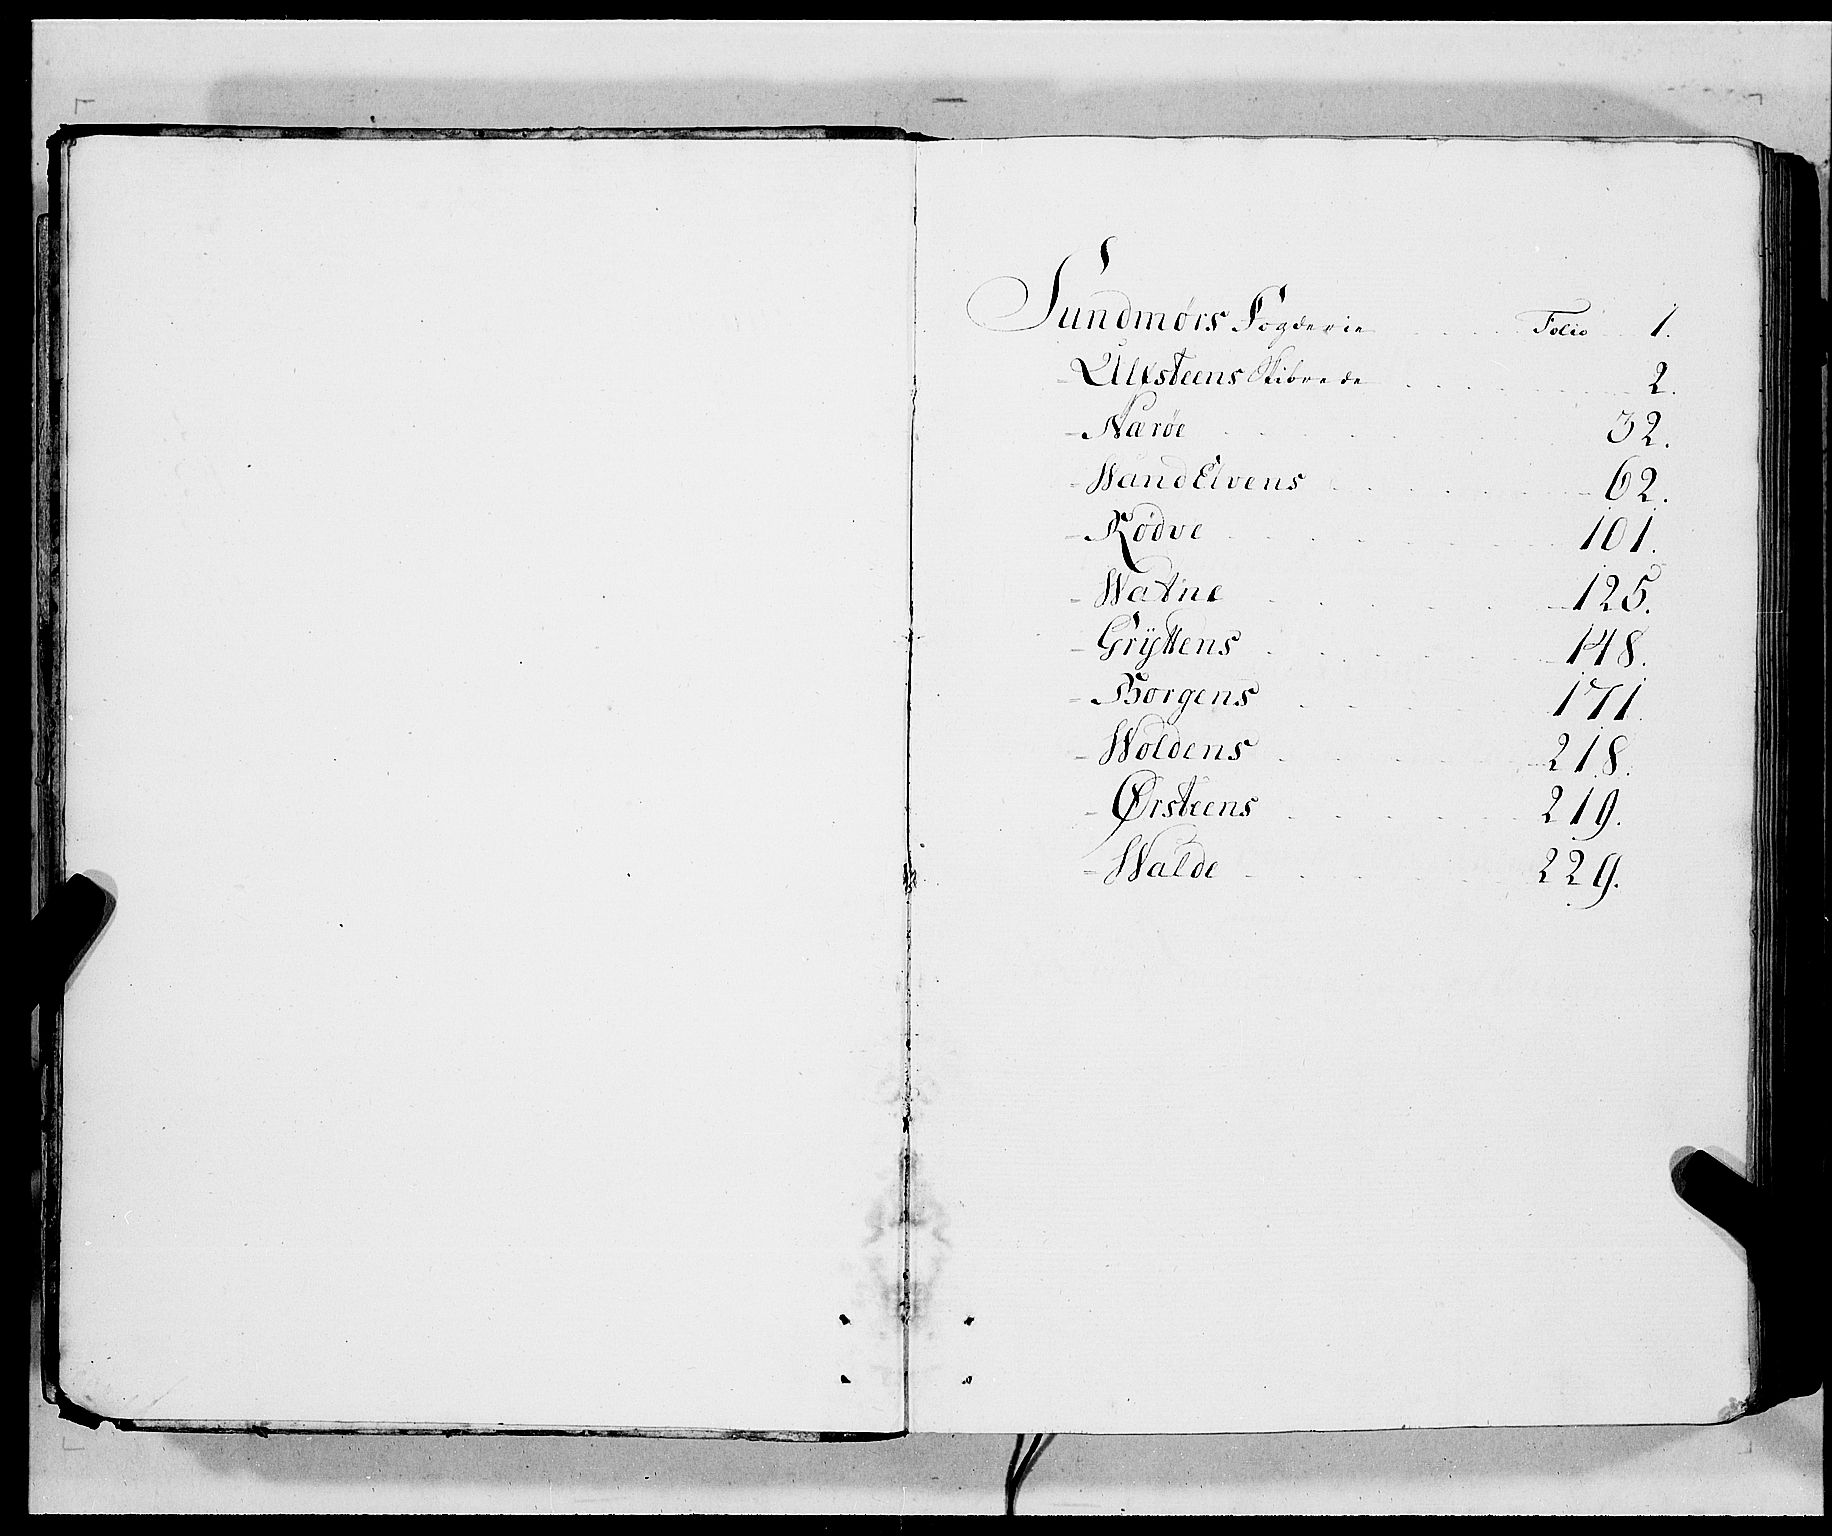 Sundmørs Fogderie Folio 1.
- Ulfsteens Skibrede 2.
- Narøe 32.
- WandElvens 62.
- Rødve 101.
- Watne 125.
- Gryttens 148.
- Borgens 171.
- Woldens 218.
- Ørsteens 219.
- Walde 229.